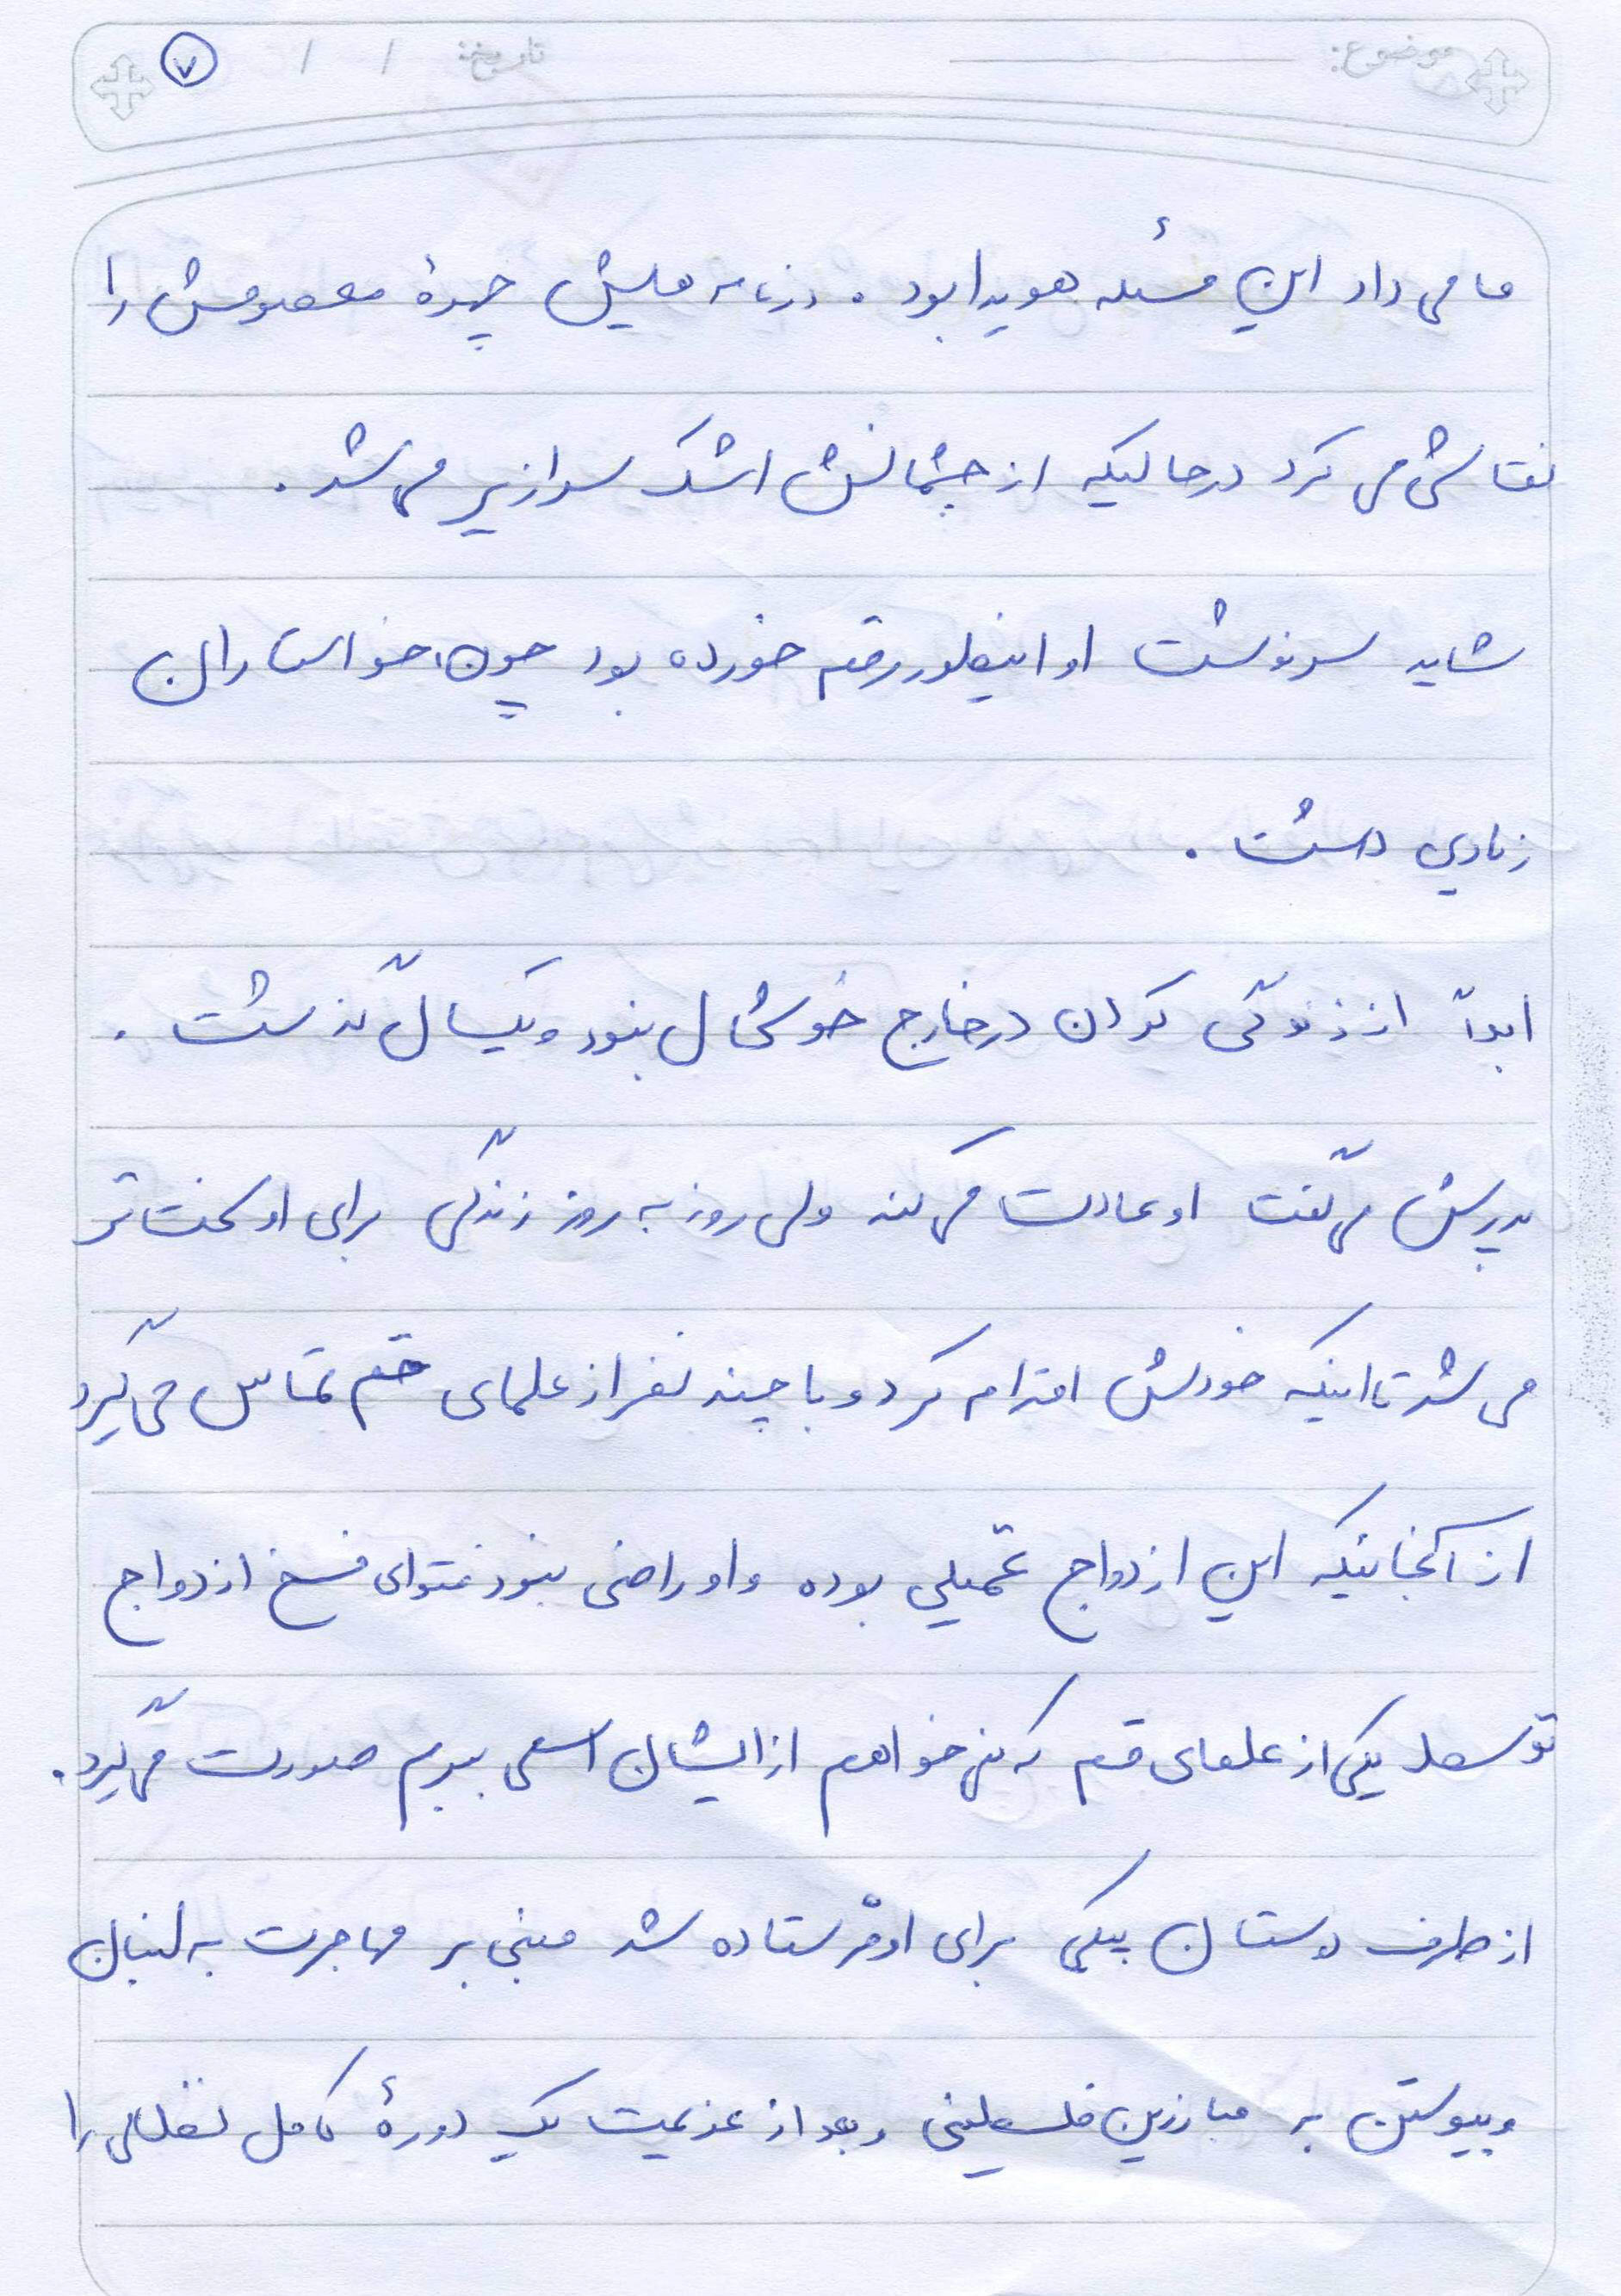 موضوع: تاریخ: / / ۷
ما می داد این مسئله هویدا بود . در نامه هایش چهرهٔ معصومش را
نقاشی می کرد درحالیکه از چشمانش اشک سرازیر می شد .
شاید سرنوشت او اینطور رقم خورده بود چون خواستاران
زیادی داشت .
ابداً از زندگی کردن در خارج خوشحال نبود و یکسال گذشت .
پدرش می گفت او عادت می کند ولی روز به روز زندگی برای او سخت تر
می شد تا اینکه خودش اقدام کرد و با چند نفر از علمای قم تماس می گیرد
از آنجائیکه این ازدواج تحمیلی بوده و او راضی نبود فتوای فسخ ازدواج
توسط یکی از علمای قم که نمی خواهم از ایشان اسمی ببرم صورت می گیرد .
از طرف دوستان پیکی برای او فرستاده شد مبنی بر مهاجرت به لبنان
و پیوستن به مبارزین فلسطینی و بعد از عزیمت یک دورهٔ کامل نظامی را